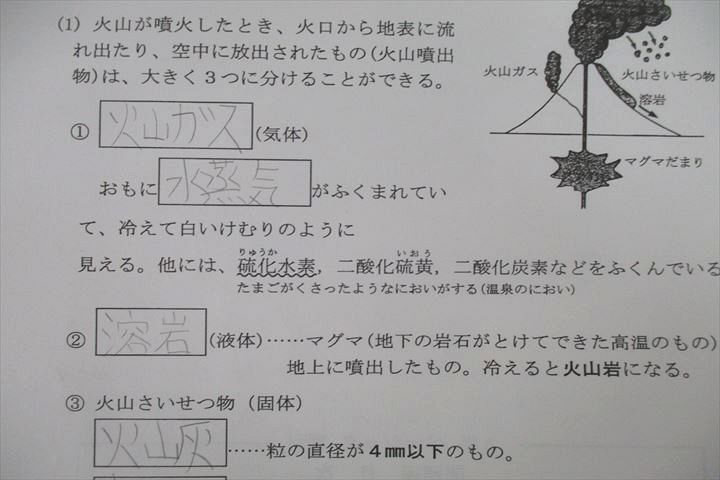 (1) 火山が噴火したとき、火口から地表に流
れ出たり、空中に放出されたもの(火山噴出
物)は、大きく3つに分けることができる。
火山ガス
火山さいせつ物
溶岩
マグマだまり
① 火山ガス (気体)
おもに 水蒸気 がふくまれてい
て、冷えて白いけむりのように
りゅうか いおう
見える。他には、硫化水素，二酸化硫黄，二酸化炭素などをふくんでいる
たまごがくさったようなにおいがする(温泉のにおい)
② 溶岩 (液体)……マグマ(地下の岩石がとけてできた高温のもの)
地上に噴出したもの。冷えると火山岩になる。
③ 火山さいせつ物 (固体)
火山灰 ……粒の直径が4mm以下のもの。